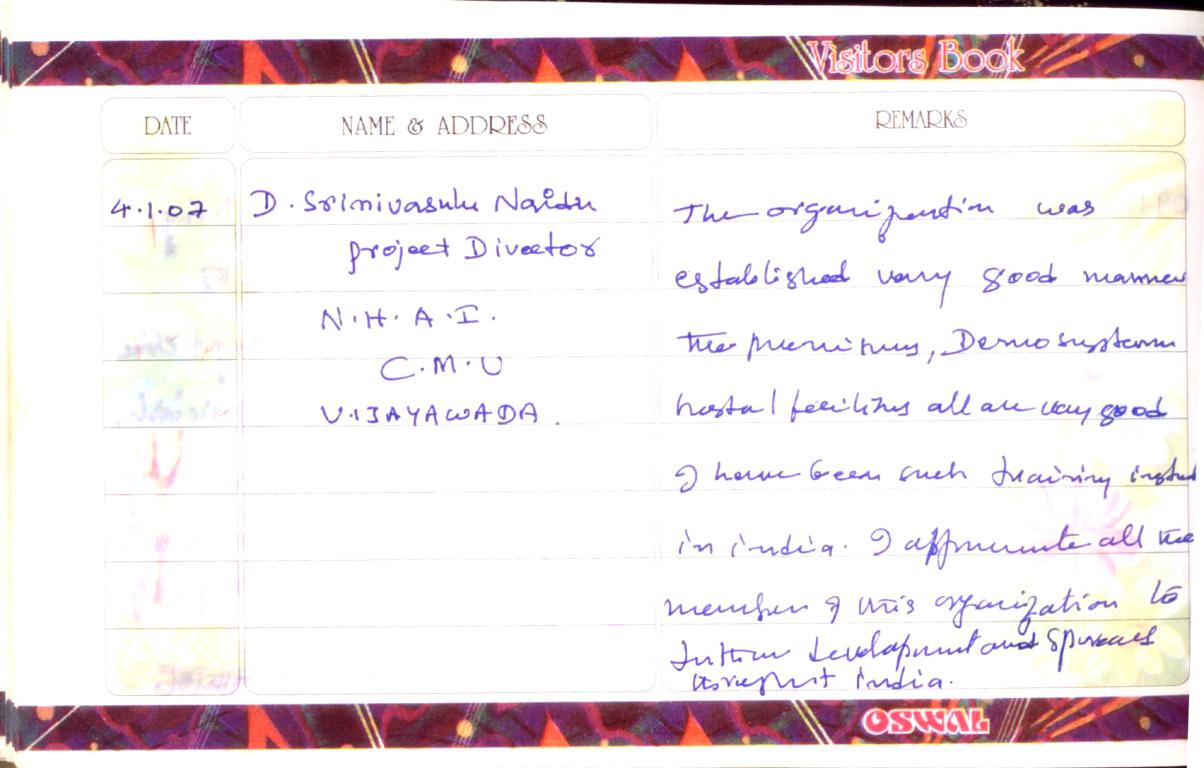 Visitors Book
DATE
NAME & ADDRESS
REMARKS
4.1.07
D. Srinivasulu Naidu
project Director
N.H.A.I.
C.M.U
VIJAYAWADA.
The organization was
established very good manner
the premises, Demo system
hostal facilities all are very good
I have been such training
in india. I appreciate all the
member of this organization to
further development and
india.
OSWAL